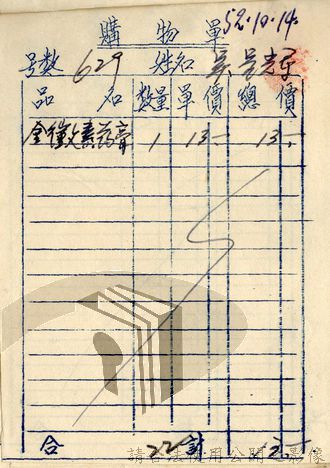 購物單 52.10.14.
号數 629 姓名 吳
品名 數量 單價 總價
金黴素药膏 1 13.- 13.-
合 計 元
請合法使用公開之影像